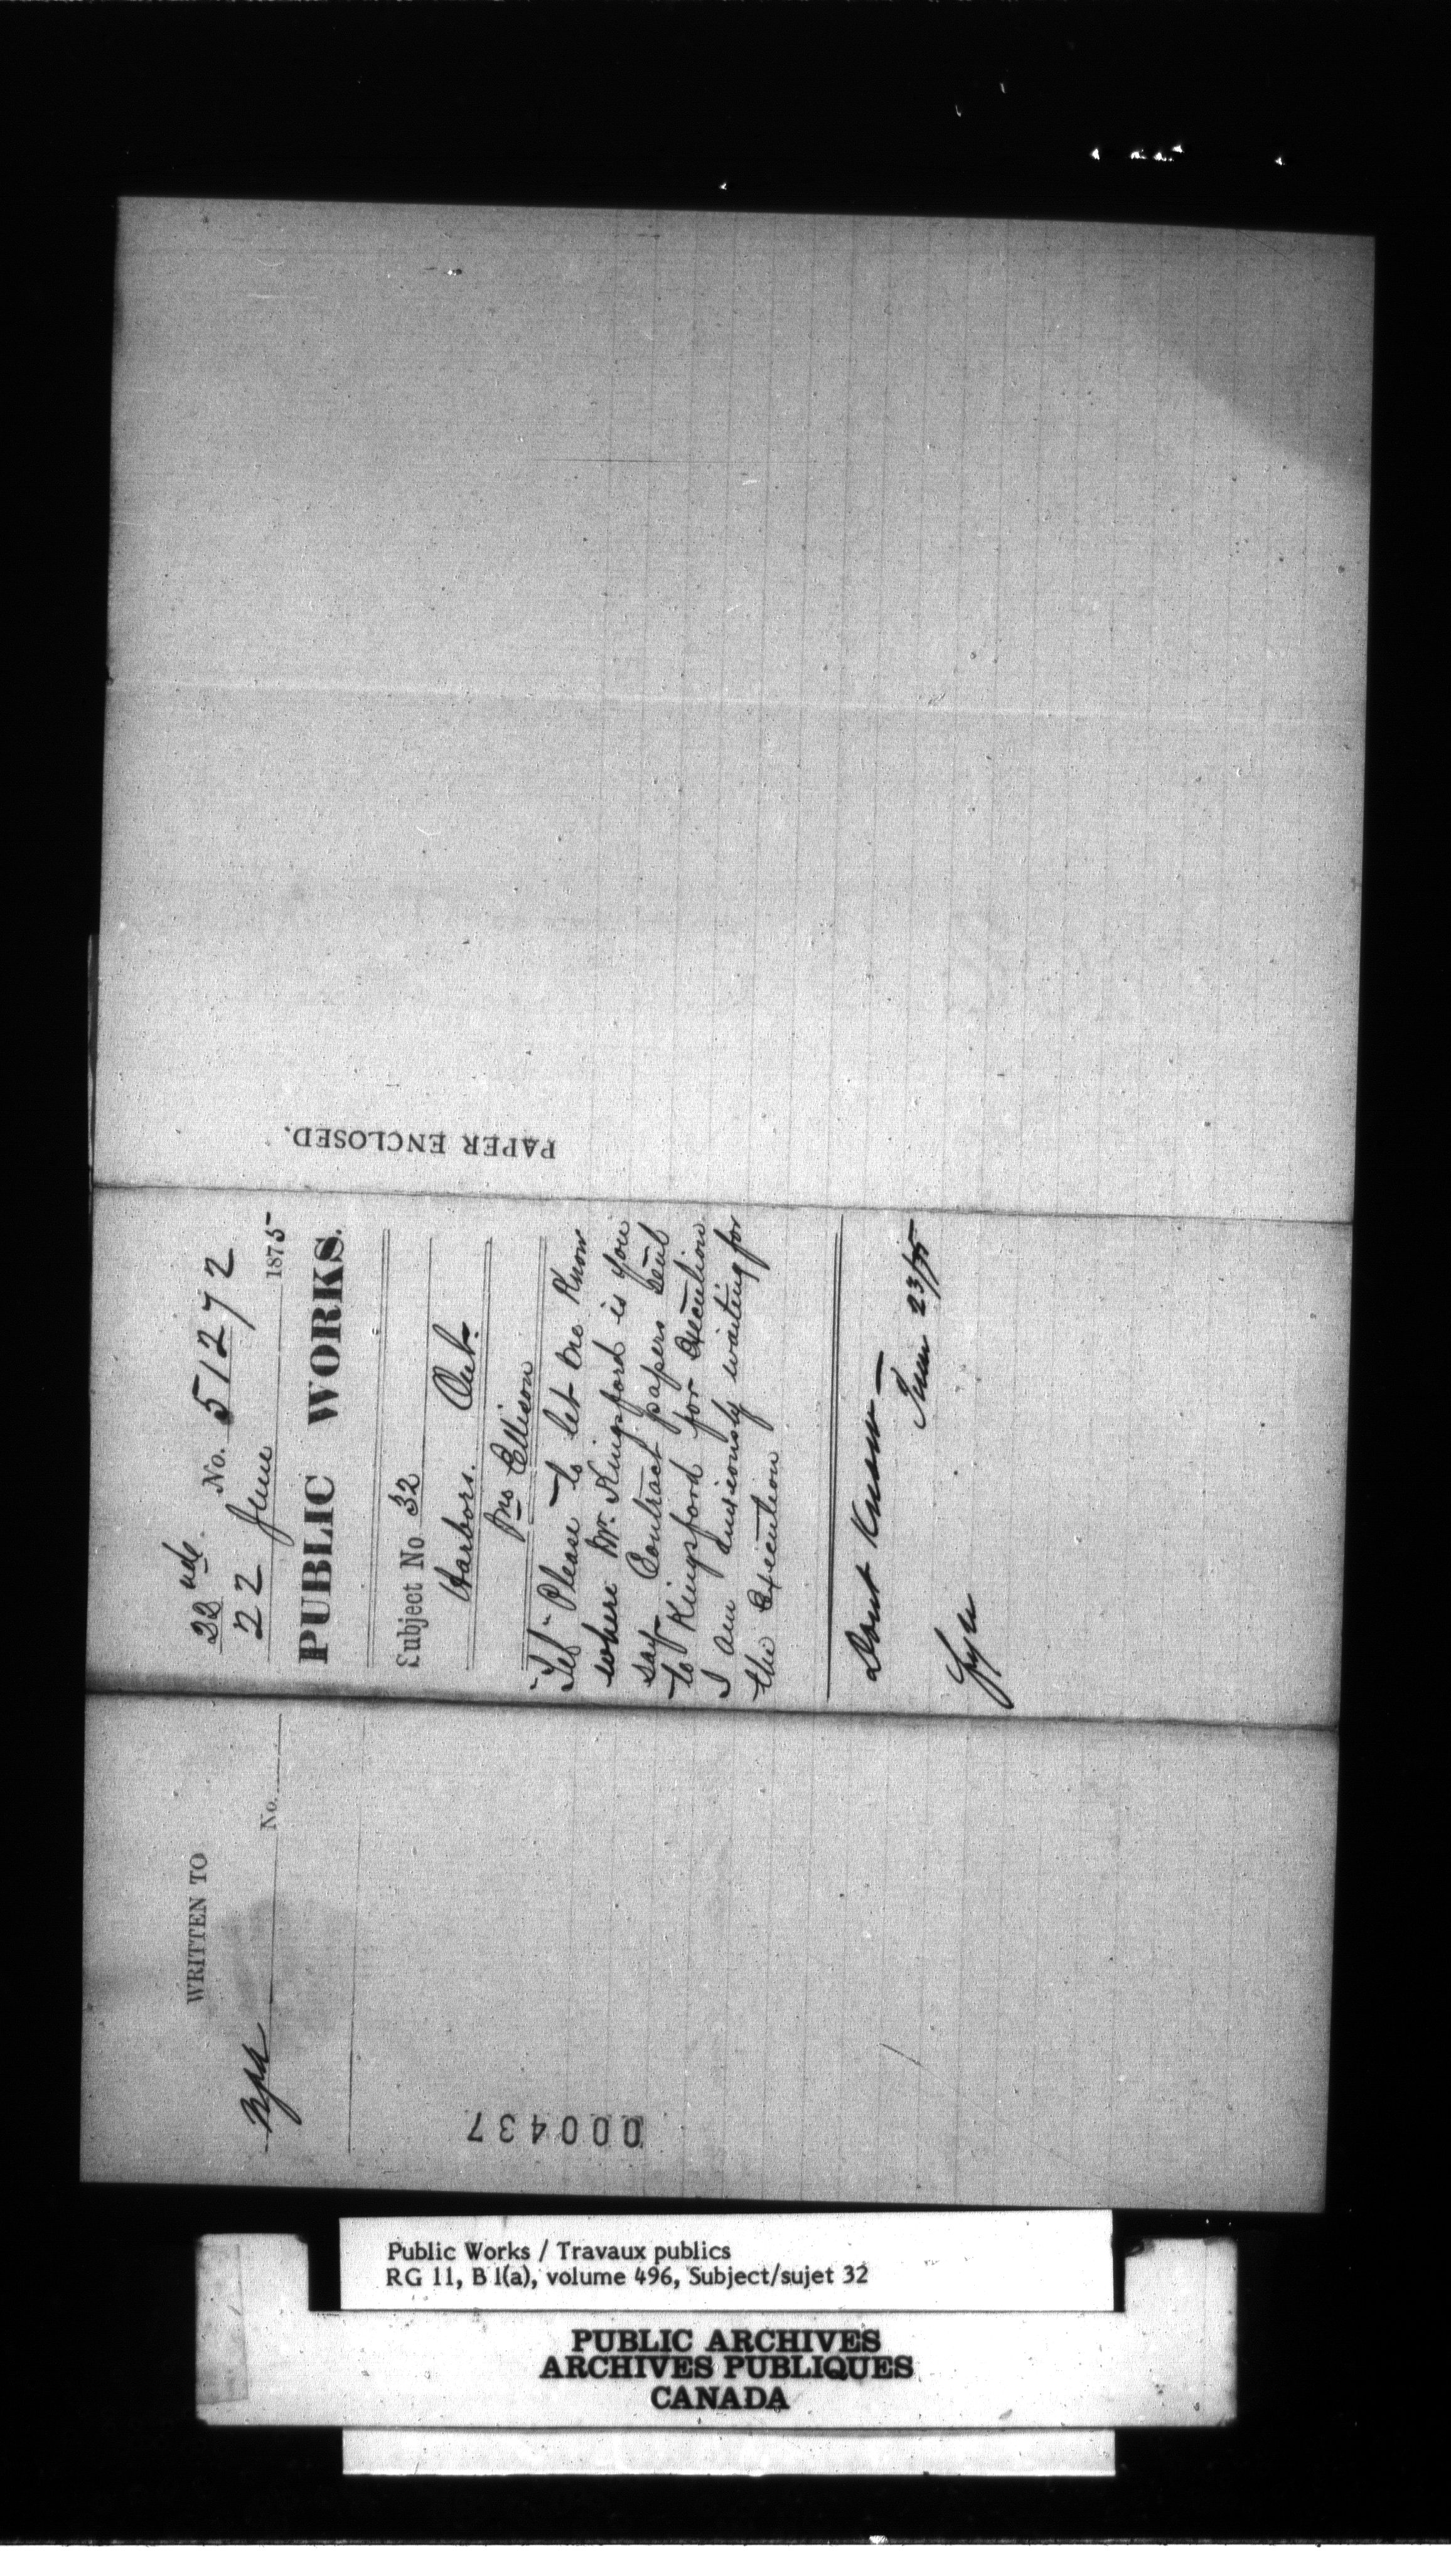 22nd. No. 51272
22 June 1875
PUBLIC WORKS.
Subject No. 32
Harbors. Ont.
Ellison
"Tel" Please to let me Know
where Mr. Kingsford is you
say Contract papers sent
to Kingsford for execution
I am anxiously waiting for
the Execution
Dont Know —
June 23/75
PAPER ENCLOSED.
WRITTEN TO
No.
000437
Public Works / Travaux publics
RG 11, B 1(a), volume 496, Subject/sujet 32
PUBLIC ARCHIVES
ARCHIVES PUBLIQUES
CANADA